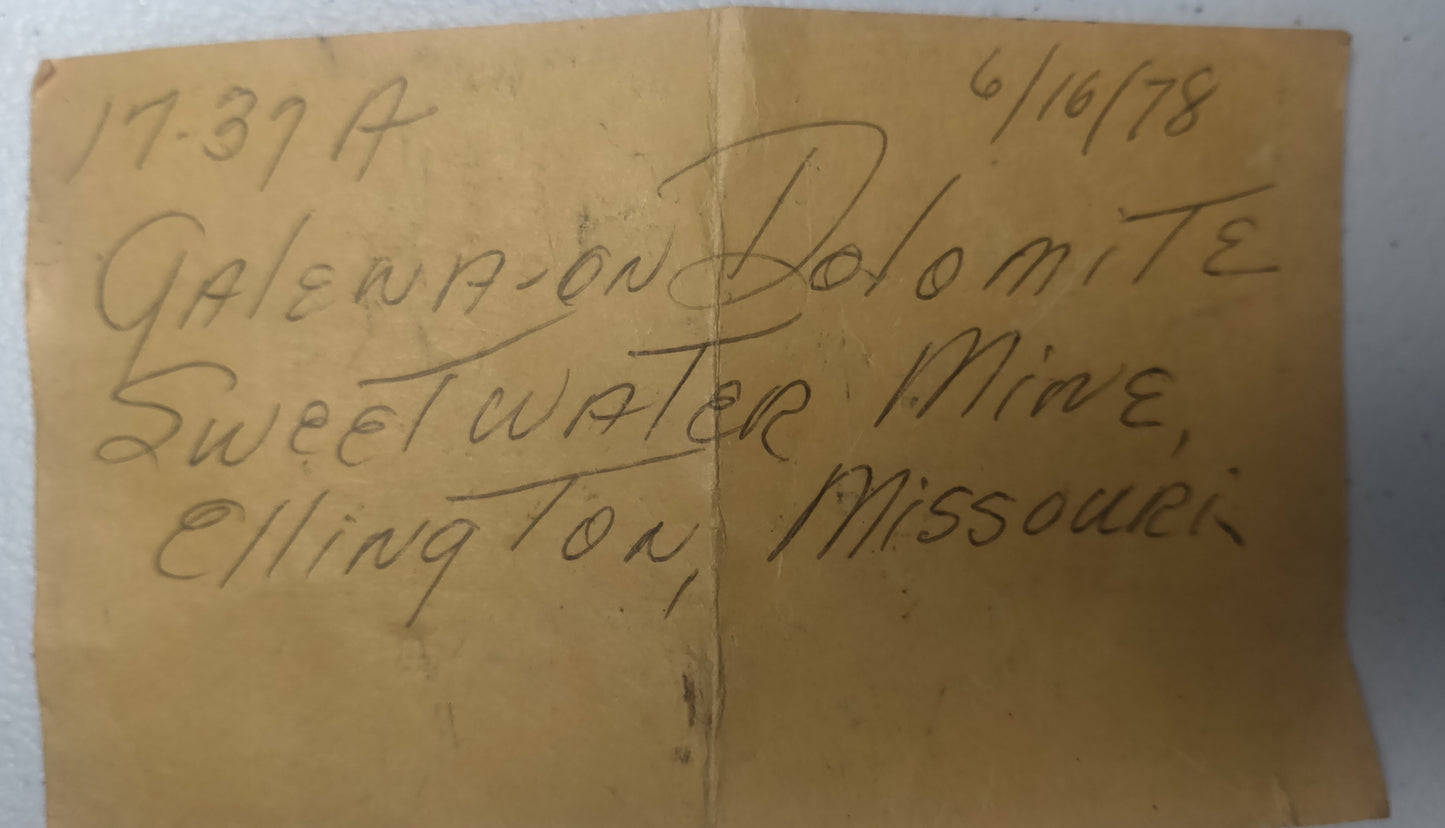 17-37 A 6/16/78
Galena-on Dolomite
Sweetwater Mine,
Ellington, Missouri